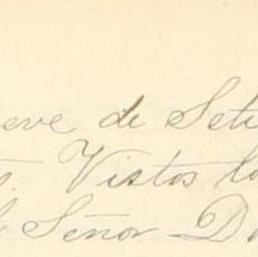 eve de Seti
Vistos lo
l Señor D